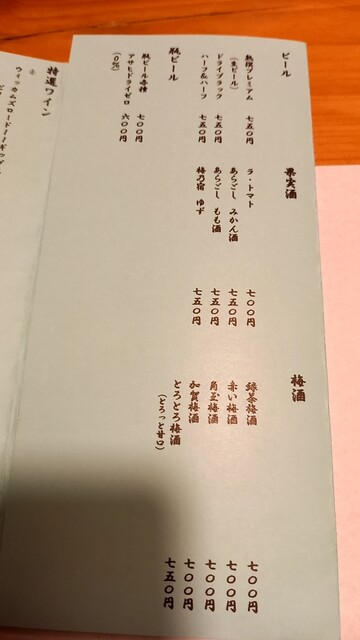 ビール
熟撰プレミアム 七五〇円
(生ビール)
ドライブラック 七五〇円
ハーフ&ハーフ 七五〇円
瓶ビール
瓶ビール各種 七〇〇円
アサヒドライゼロ 六〇〇円
(0%)
果実酒
ラ・トマト 七〇〇円
あらごし みかん酒 七五〇円
あらごし もも酒 七五〇円
梅乃宿 ゆず 七五〇円
梅酒
緑茶梅酒 七〇〇円
赤い梅酒 七〇〇円
角玉梅酒 七〇〇円
加賀梅酒 七〇〇円
とろとろ梅酒 七五〇円
(とろっと甘口)
特選ワイン